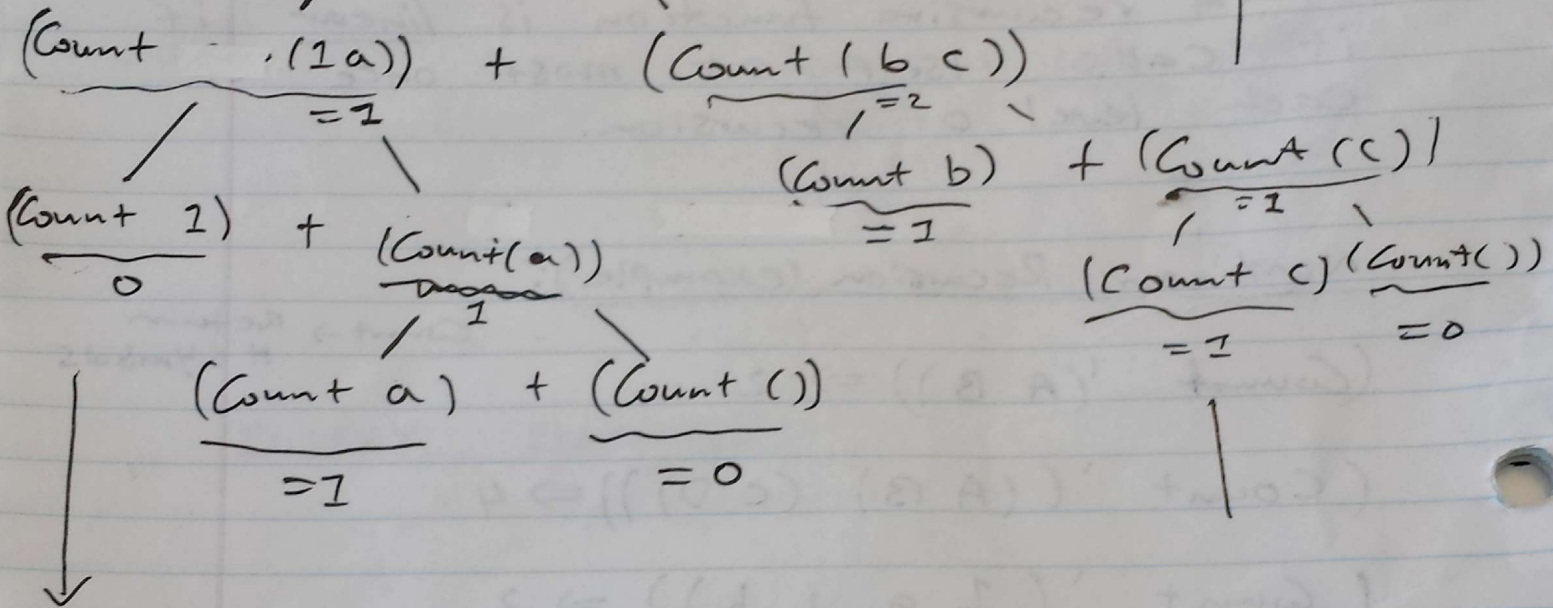 (Count (1a)) + (Count (b c))
=1 =2
(Count b) + (Count (c))
(Count 1) + (Count(a)) =1 =1
0 1 (Count c) (Count())
(Count a) + (Count ()) =1 =0
=1 =0